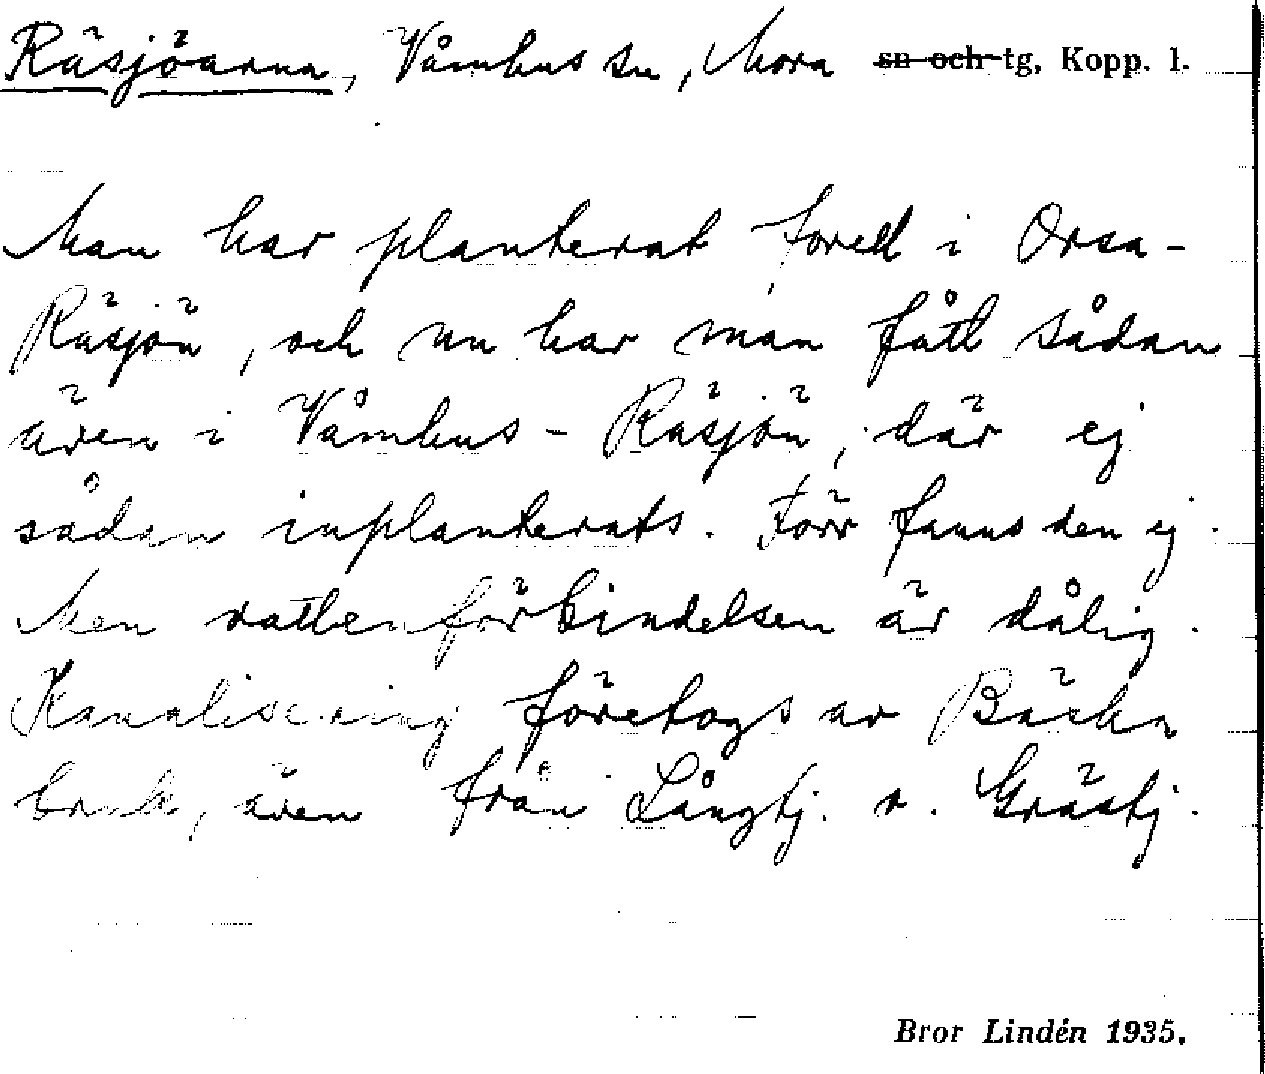 Räsjöarna, Våmhus sn, Mora sn och tg, Kopp. l.
Man har planterat forell i Orsa-
Räsjön, och nu har man fått sådan
även i Våmhus-Räsjön, där ej
sådan inplanterats. Förr fanns den ej.
Men vattenförbindelsen är dålig.
Kanalisering företogs av Bäcka
bruk, även från Långtj. o. Grästj.
Bror Lindén 1935.